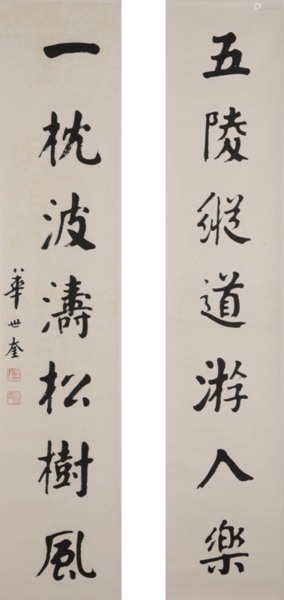 五陵縱道游人樂
一枕波濤松樹風
華世奎